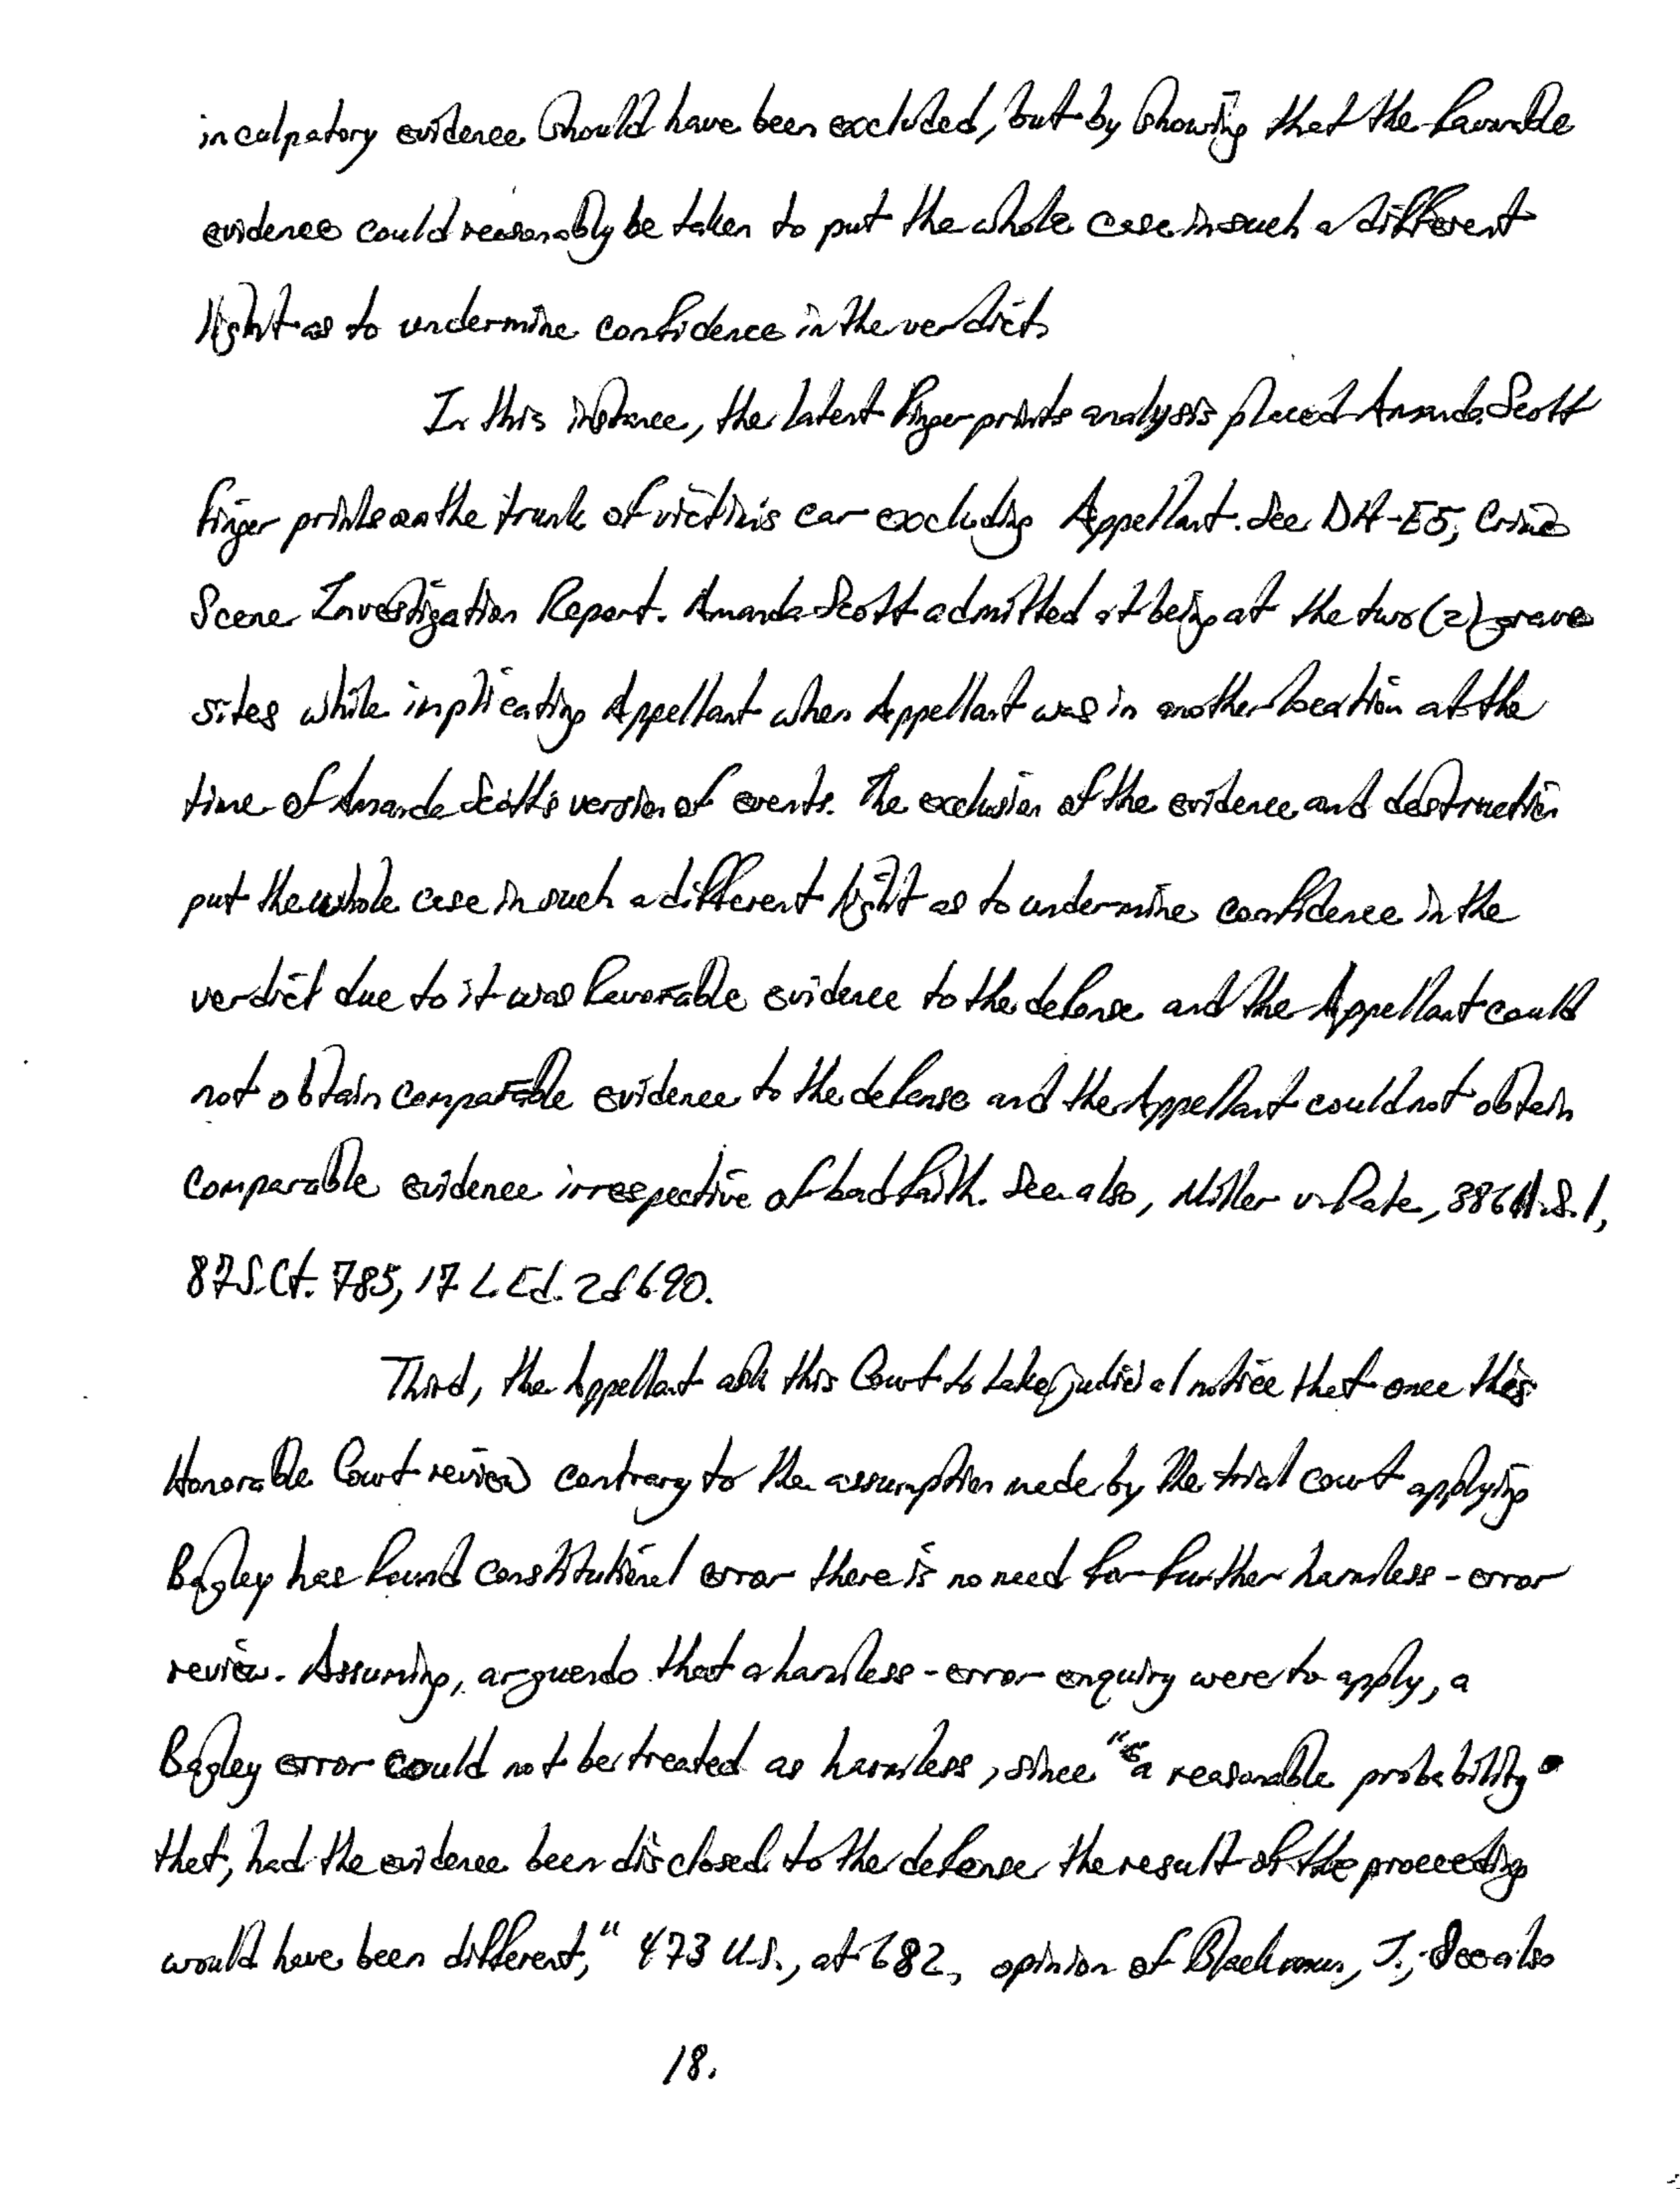 inculpatory evidence should have been excluded, but by showing that the favorable
evidence could reasonably be taken to put the whole case in such a different
light as to undermine confidence in the verdict.
In this instance, the latent finger prints analysis placed Amanda Scott
finger prints on the trunk of victim's car excluding Appellant. See DA-E5, Crime
Scene Investigation Report. Amanda Scott admitted at being at the two (2) grave
sites while implicating Appellant when Appellant was in another location at the
time of Amanda Scott's version of events. The exclusion of the evidence and destruction
put the whole case in such a different light as to undermine confidence in the
verdict due to it was favorable evidence to the defense and the Appellant could
not obtain comparable evidence to the defense and the Appellant could not obtain
comparable evidence irrespective of bad faith. See also, Miller v. Pate, 386 U.S. 1,
87 S.Ct. 785, 17 L.Ed. 2d 690.
Third, the Appellant ask this Court to take judicial notice that once this
Honorable Court review contrary to the assumption made by the trial court applying
Bagley has found constitutional error there is no need for further harmless-error
review. Assuming, arguendo that a harmless-error enquiry were to apply, a
Bagley error could not be treated as harmless, since "a reasonable probability
that, had the evidence been disclosed to the defense the result of the proceeding
would have been different," 473 U.S., at 682, opinion of Blackmun, J.; See also
18.